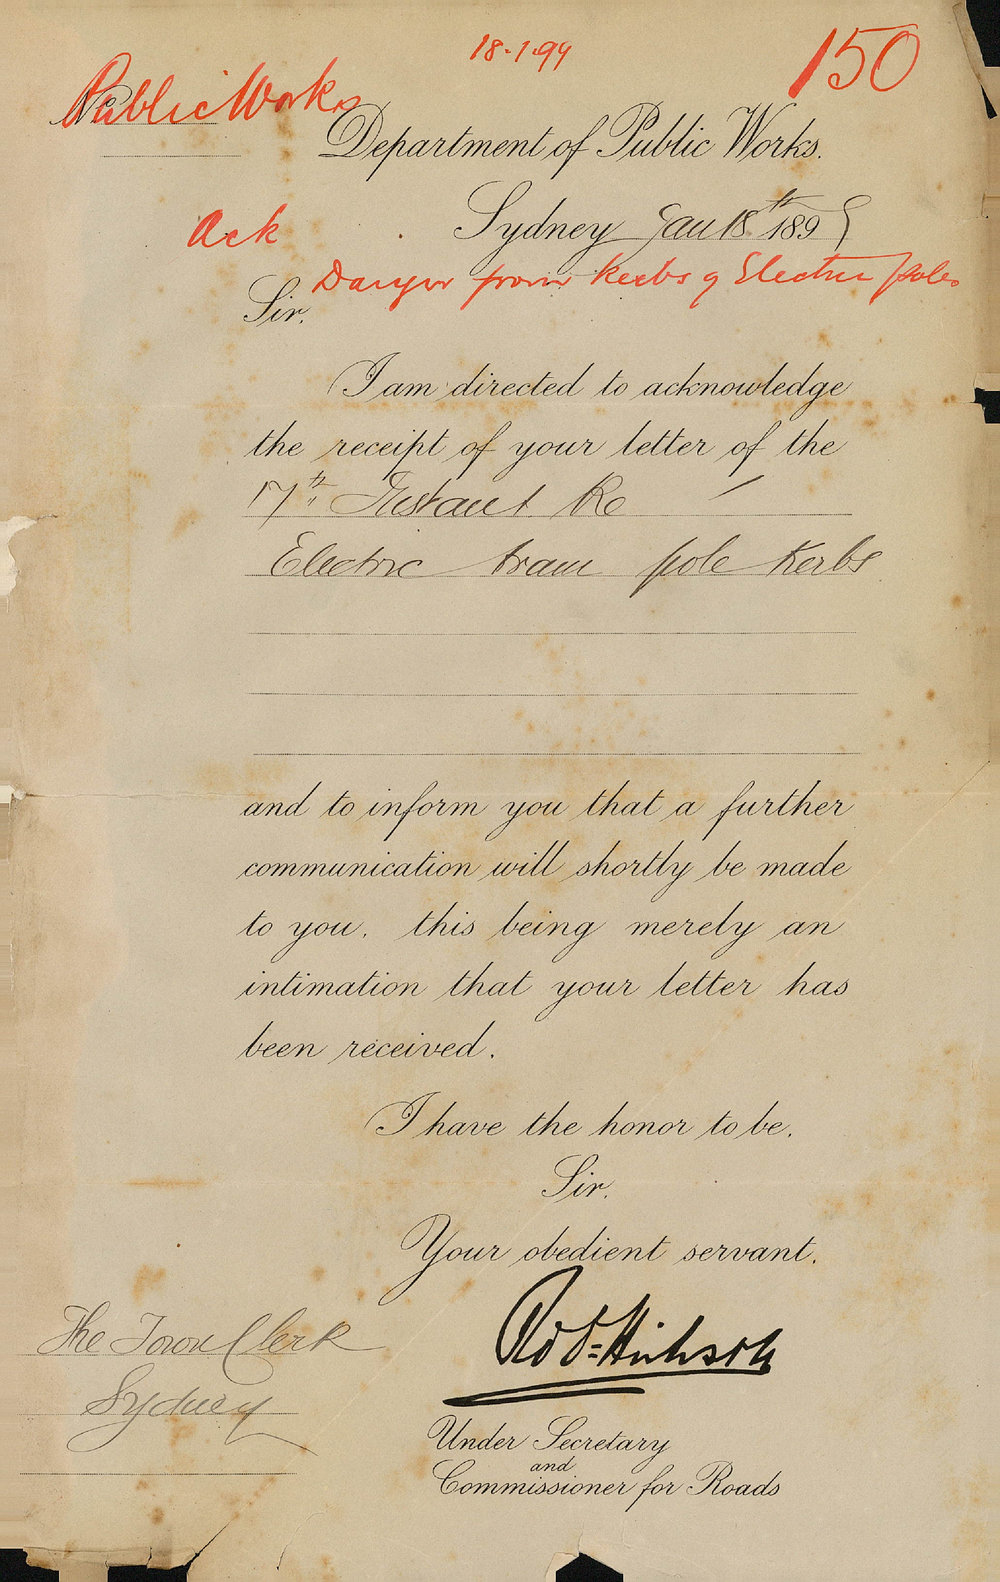 18.1.99
150
Public Works
Department of Public Works.
Sydney Jan 18th 1899
Ack
Danger from Kerbs of Electric poles
Sir,
I am directed to acknowledge
the receipt of your letter of the
17th Instant Re
Electric tram pole Kerbs
and to inform you that a further
communication will shortly be made
to you, this being merely an
intimation that your letter has
been received.
I have the honor to be,
Sir,
Your obedient servant,
Robt Hickson
The Town Clerk
Sydney
Under Secretary
and
Commissioner for Roads